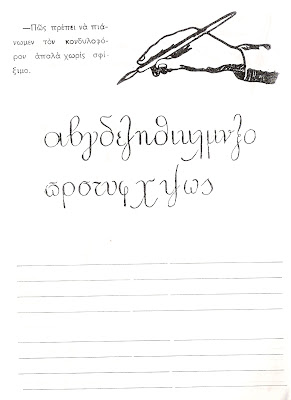 —Πῶς πρέπει νὰ πιά-
νωμεν τὸν κονδυλοφό-
ρον ἁπαλὰ χωρὶς σφί-
ξιμο.
αβγδεζηθικλμνξο
πρστυφχψως